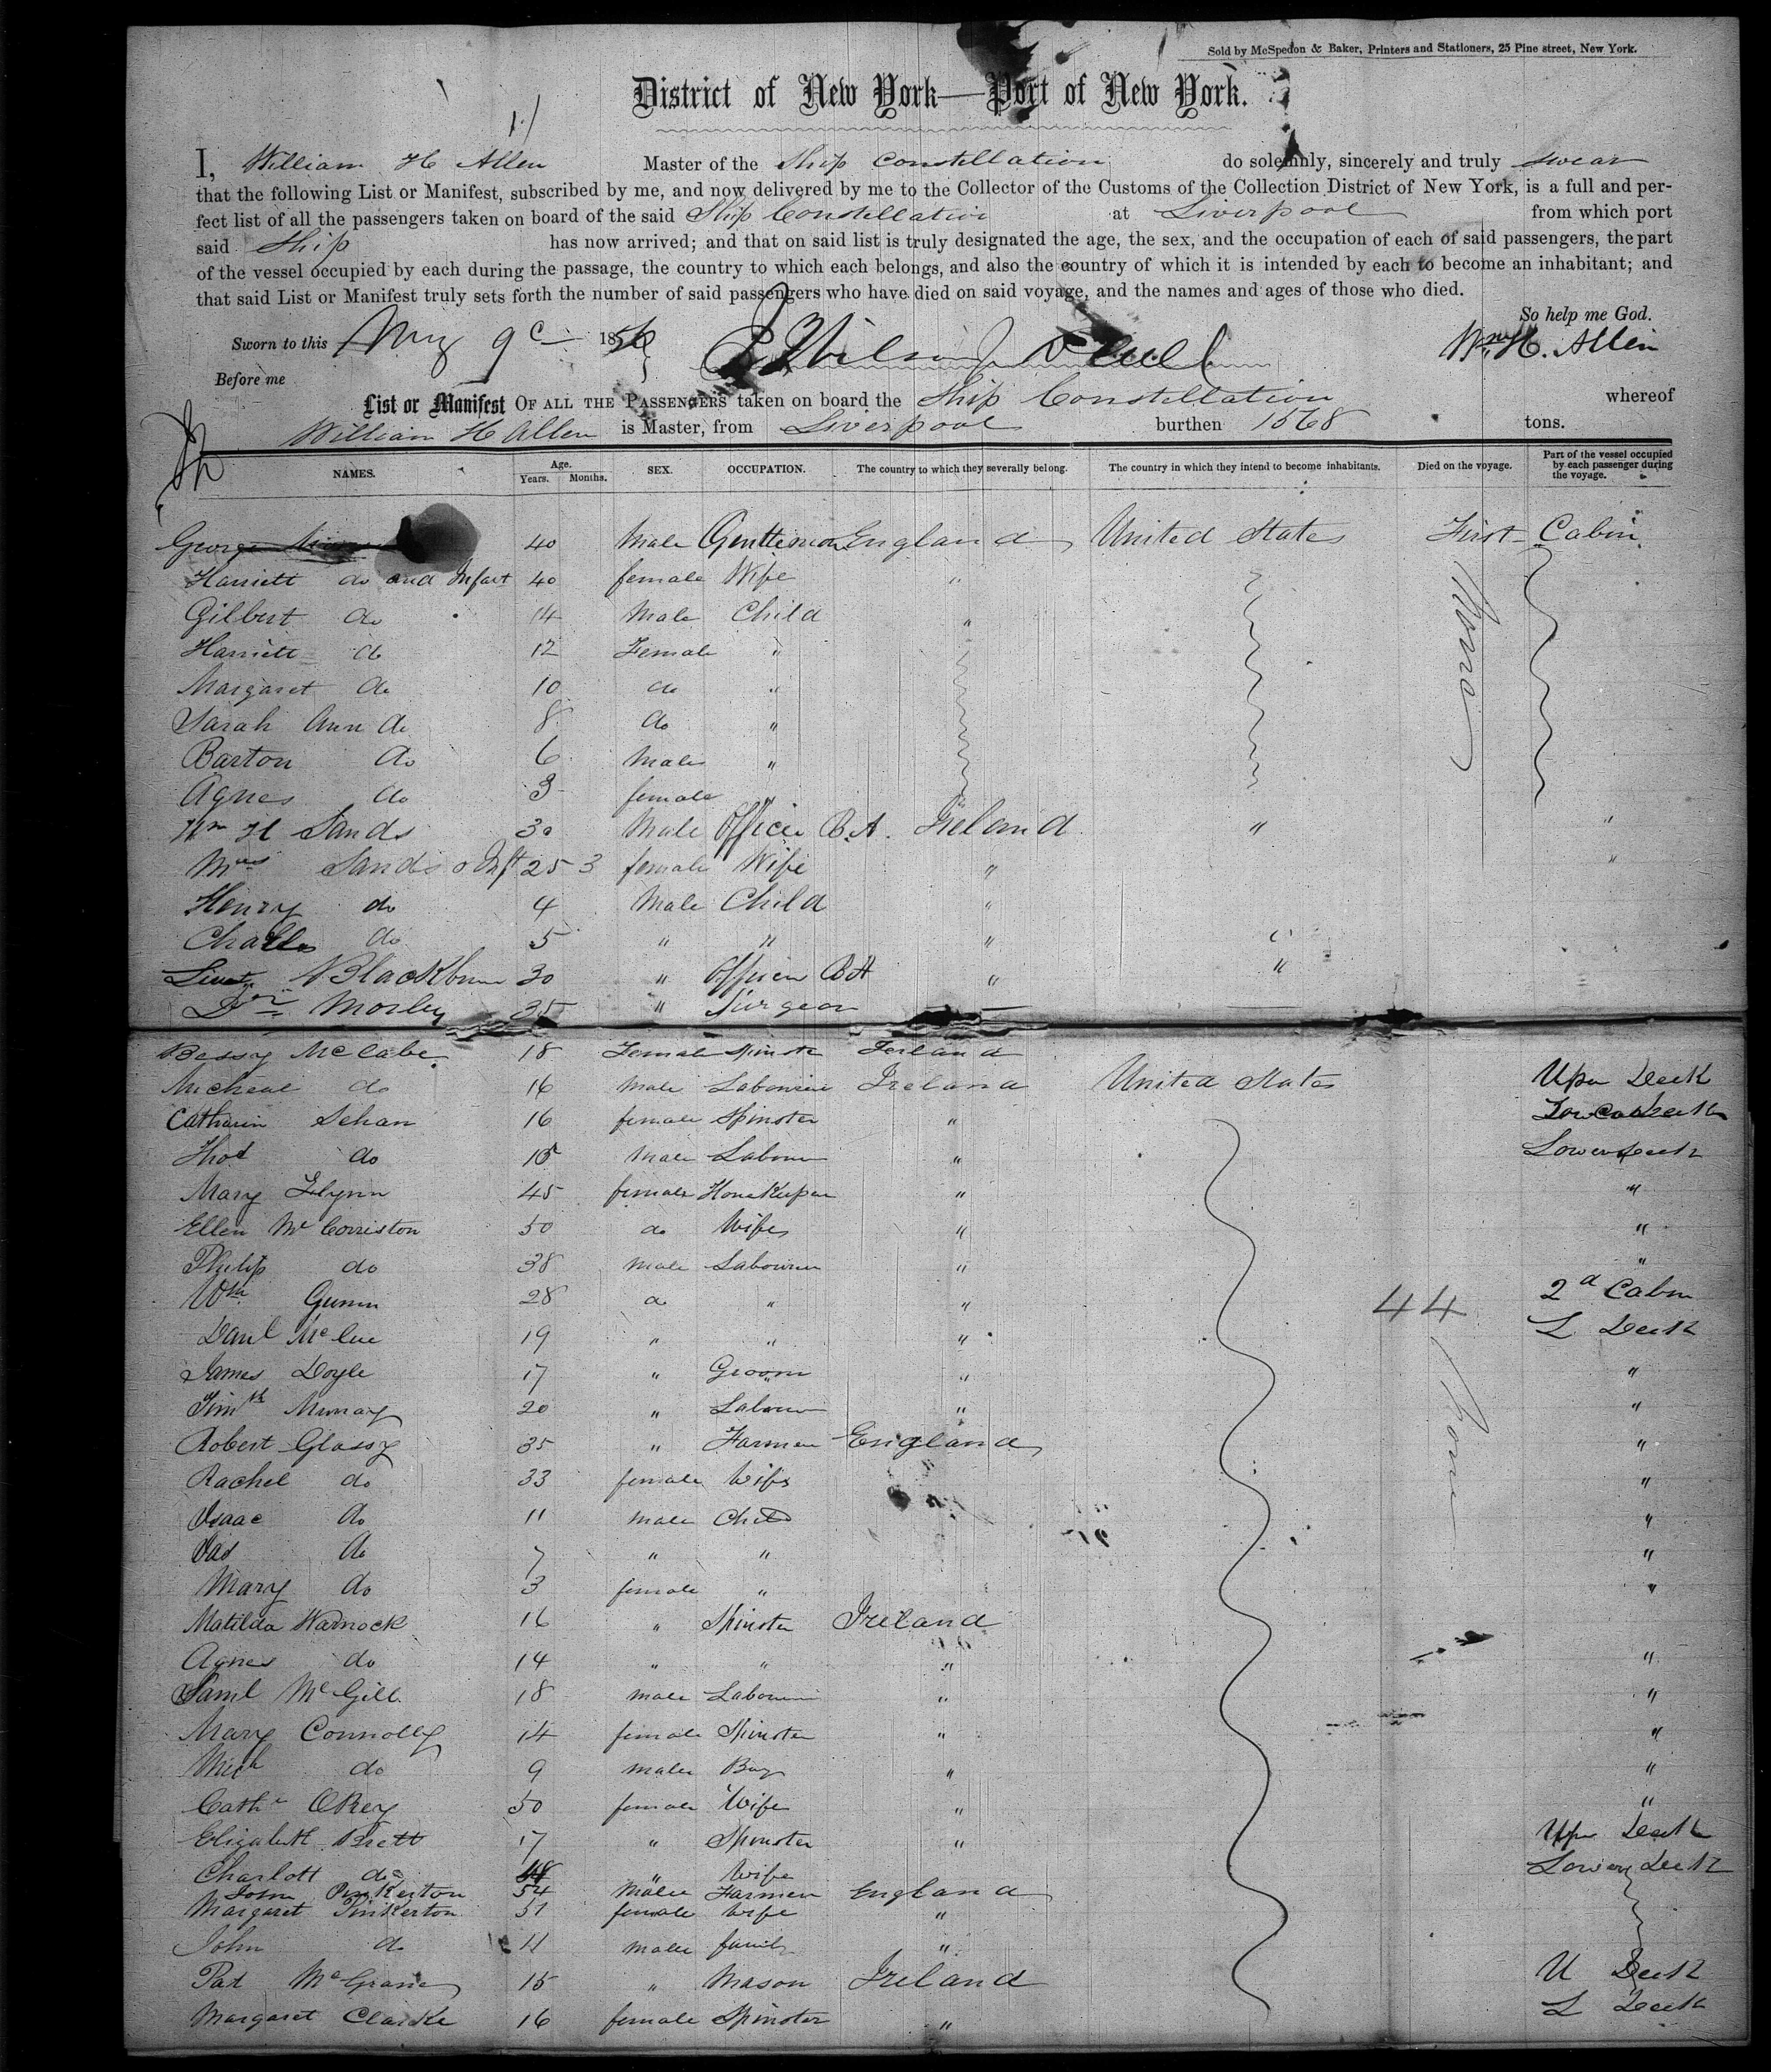 Sold by McSpedon & Baker, Printers and Stationers, 25 Pine street, New York.
District of New York—Port of New York.
I, William H Allen Master of the Ship Constellation do solemnly, sincerely and truly swear
that the following List or Manifest, subscribed by me, and now delivered by me to the Collector of the Customs of the Collection District of New York, is a full and per-
fect list of all the passengers taken on board of the said Ship Constellation at Liverpool from which port
said Ship has now arrived; and that on said list is truly designated the age, the sex, and the occupation of each of said passengers, the part
of the vessel occupied by each during the passage, the country to which each belongs, and also the country of which it is intended by each to become an inhabitant; and
that said List or Manifest truly sets forth the number of said passengers who have died on said voyage, and the names and ages of those who died.
So help me God.
Sworn to this 9 1856 Wm H. Allen
Before me
List or Manifest OF ALL THE PASSENGERS taken on board the Ship Constellation whereof
William H Allen is Master, from Liverpool burthen 1568 tons.
NAMES. Age. Years. Months. SEX. OCCUPATION. The country to which they severally belong. The country in which they intend to become inhabitants. Died on the voyage. Part of the vessel occupied by each passenger during the voyage.
George 40 Male Gentleman England United States First Cabin
Harriett do and Infant 40 female Wife "
Gilbert do 14 Male Child "
Harriett do 12 Female "
Margaret do 10 do "
Sarah Ann do 8 do "
Barton do 6 Male "
Agnes do 3 female "
Wm H Sands 30 Male Officer B.A. Ireland " "
Mrs Sands & Inft 25 3 female Wife " "
Henry do 4 Male Child "
Charles do 5 " " " "
Lieut Blackburn 30 " Officer BA " "
Dr Morley 35 " Surgeon
Bessy McCabe 18 Female Spinster Ireland
Micheal do 16 Male Labourer Ireland United States Uper Deck
Catharin Sehan 16 female Spinster "
Thos do 15 Male Labourer " Lower Deck
Mary Flynn 45 female HouseKeeper " "
Ellen McCorriston 50 do Wife " "
Philip do 38 Male Labourer " "
Wm Gunn 28 do " " 44 2d Cabin
Danl McCue 19 " " " L Deck
James Doyle 17 " Groom " "
Timth Murray 20 " Labourer " "
Robert Glassy 35 " Farmer England "
Rachel do 33 female Wife "
Isaac do 11 male Child "
Jas do 7 " " "
Mary do 3 female " "
Matilda Warnock 16 " Spinster Ireland
Agnes do 14 " " " "
Saml McGill 18 male Labourer " "
Mary Connolly 14 female Spinster " "
Mich do 9 male Boy " "
Cathe OKey 50 female Wife " "
Elizabeth Brett 17 " Spinster " Uper Deck
Charlott do 48 " Wife Lower Deck
John Pinkerton 54 Male Farmer England
Margaret Pinkerton 51 female Wife "
John do 11 male family "
Pat McGrane 15 " Mason Ireland U Deck
Margaret Clarke 16 female Spinster " L Deck